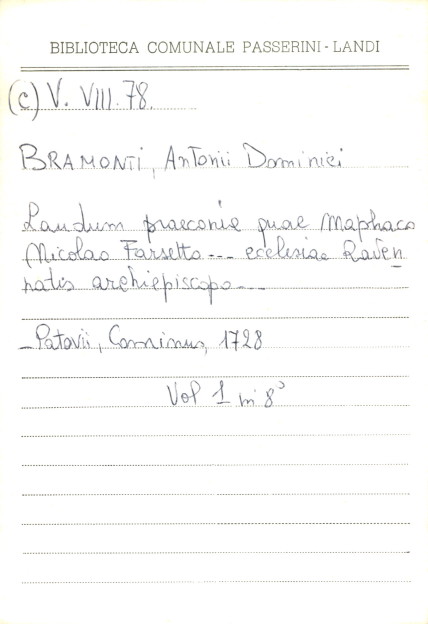 BIBLIOTECA COMUNALE PASSERINI - LANDI
(c) V. VIII. 78.
BRAMONTI, Antonii Dominici
Laudum praeconia quae Maphaeo
Nicolao Farsetto --- ecclesiae Raven
natis archiepiscopo ---
- Patavii, Cominus, 1728
Vol 1 in 8°